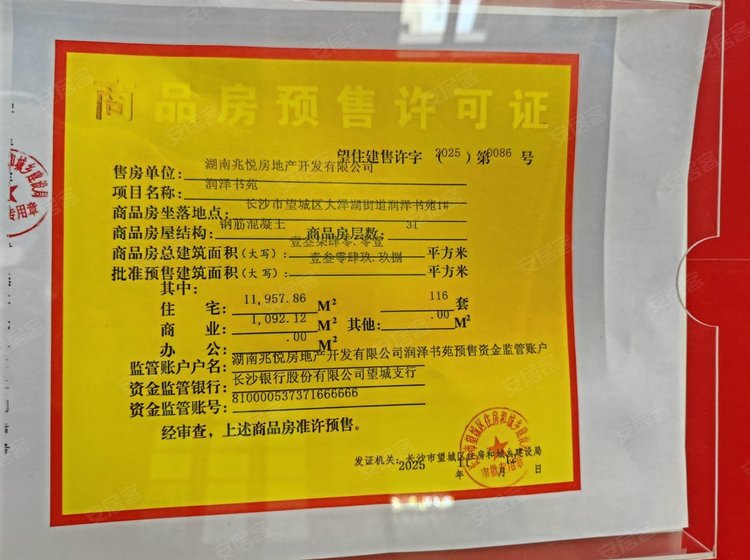 商品房预售许可证
望住建售许字（2025）第0086号
售房单位：湖南兆悦房地产开发有限公司
项目名称：润泽书苑
商品房坐落地点：长沙市望城区大泽湖街道润泽书苑1#
商品房屋结构：钢筋混凝土 商品房层数：31
商品房总建筑面积（大写）：壹叁柒肆零.零壹 平方米
批准预售建筑面积（大写）：壹叁零肆玖.玖捌 平方米
其中：
住 宅：11,957.86 M² 116 套
商 业：1,092.12 M² 其他：.00 M²
办 公：.00 M²
监管账户户名：湖南兆悦房地产开发有限公司润泽书苑预售资金监管账户
资金监管银行：长沙银行股份有限公司望城支行
资金监管账号：810000537371666666
经审查，上述商品房准许预售。
发证机关：长沙市望城区住房和城乡建设局
2025 年 11 月 12 日
安居客